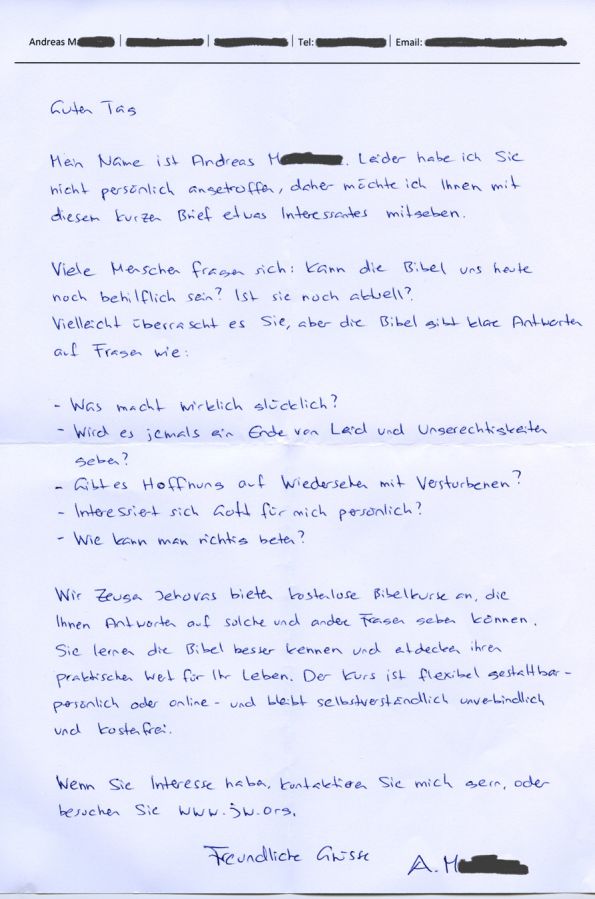 Andreas M | | | Tel: | Email:
Guten Tag
Mein Name ist Andreas M . Leider habe ich Sie
nicht persönlich angetroffen, daher möchte ich Ihnen mit
diesem kurzen Brief etwas Interessantes mitgeben.
Viele Menschen fragen sich: Kann die Bibel uns heute
noch behilflich sein? Ist sie noch aktuell?
Vielleicht überrascht es Sie, aber die Bibel gibt klare Antworten
auf Fragen wie:
- Was macht wirklich glücklich?
- Wird es jemals ein Ende von Leid und Ungerechtigkeiten
geben?
- Gibt es Hoffnung auf Wiedersehen mit Verstorbenen?
- Interessiert sich Gott für mich persönlich?
- Wie kann man richtig beten?
Wir Zeugen Jehovas bieten kostenlose Bibelkurse an, die
Ihnen Antworten auf solche und andere Fragen geben können.
Sie lernen die Bibel besser kennen und etdecken ihren
praktischen Wert für Ihr Leben. Der Kurs ist flexibel gestaltbar -
persönlich oder online - und bleibt selbstverständlich unverbindlich
und kostenfrei.
Wenn Sie Interesse haben, kontaktieren Sie mich gern, oder
besuchen Sie www.jw.org.
Freundliche Grüsse A. M